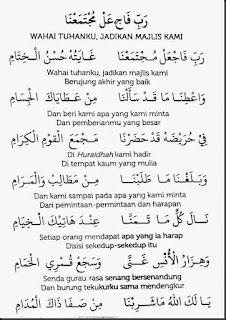 رَبِّ فَاجْعَلْ مُجْتَمَعْنَا
WAHAI TUHANKU, JADIKAN MAJLIS KAMI
رَبِّ فَاجْعَلْ مُجْتَمَعْنَا غَايَتُهُ حُسْنُ الْخِتَامِ
Wahai tuhanku, jadikan majlis kami
Berujung akhir yang baik
وَاعْطِنَا مَا قَدْ سَأَلْنَا مِنْ عَطَايَاكَ الْجِسَامِ
Dan beri kami apa yang kami minta
Dan pemberianmu yang besar
فِي حُرَيْضَة قَدْ حَضَرْنَا مَجْمَعَ الْقَوْمِ الْكِرَامِ
Di Huraidhah kami hadir
Di tempat kaum yang mulia
وَبَلَّغْنَا مَا طَلَبْنَا مِنْ مَطَالِبْ وَالْمَرَامِ
Dan kami sampai pada apa yang kami minta
Dari permintaan-permintaan dan harapan
نَالَ كُلٌّ مَا تَمَنَّا عِنْدَ هَاتِيْكَ الْخِيَامِ
Setiap orang mendapat apa yang ia harap
Disisi sekedup-sekedup itu
وَهَزَارُ الْأُنْسِ غَنَّى وَسَجَعْ قُمْرِي الْحَمَامِ
Senda gurau rasa senang bersenandung
Dan burung tekukurku sama mendengkur
يَا لَكَ اللهُ مَاشَرِبْنَا مِنْ صَفَا ذَاكَ الْمُدَامِ